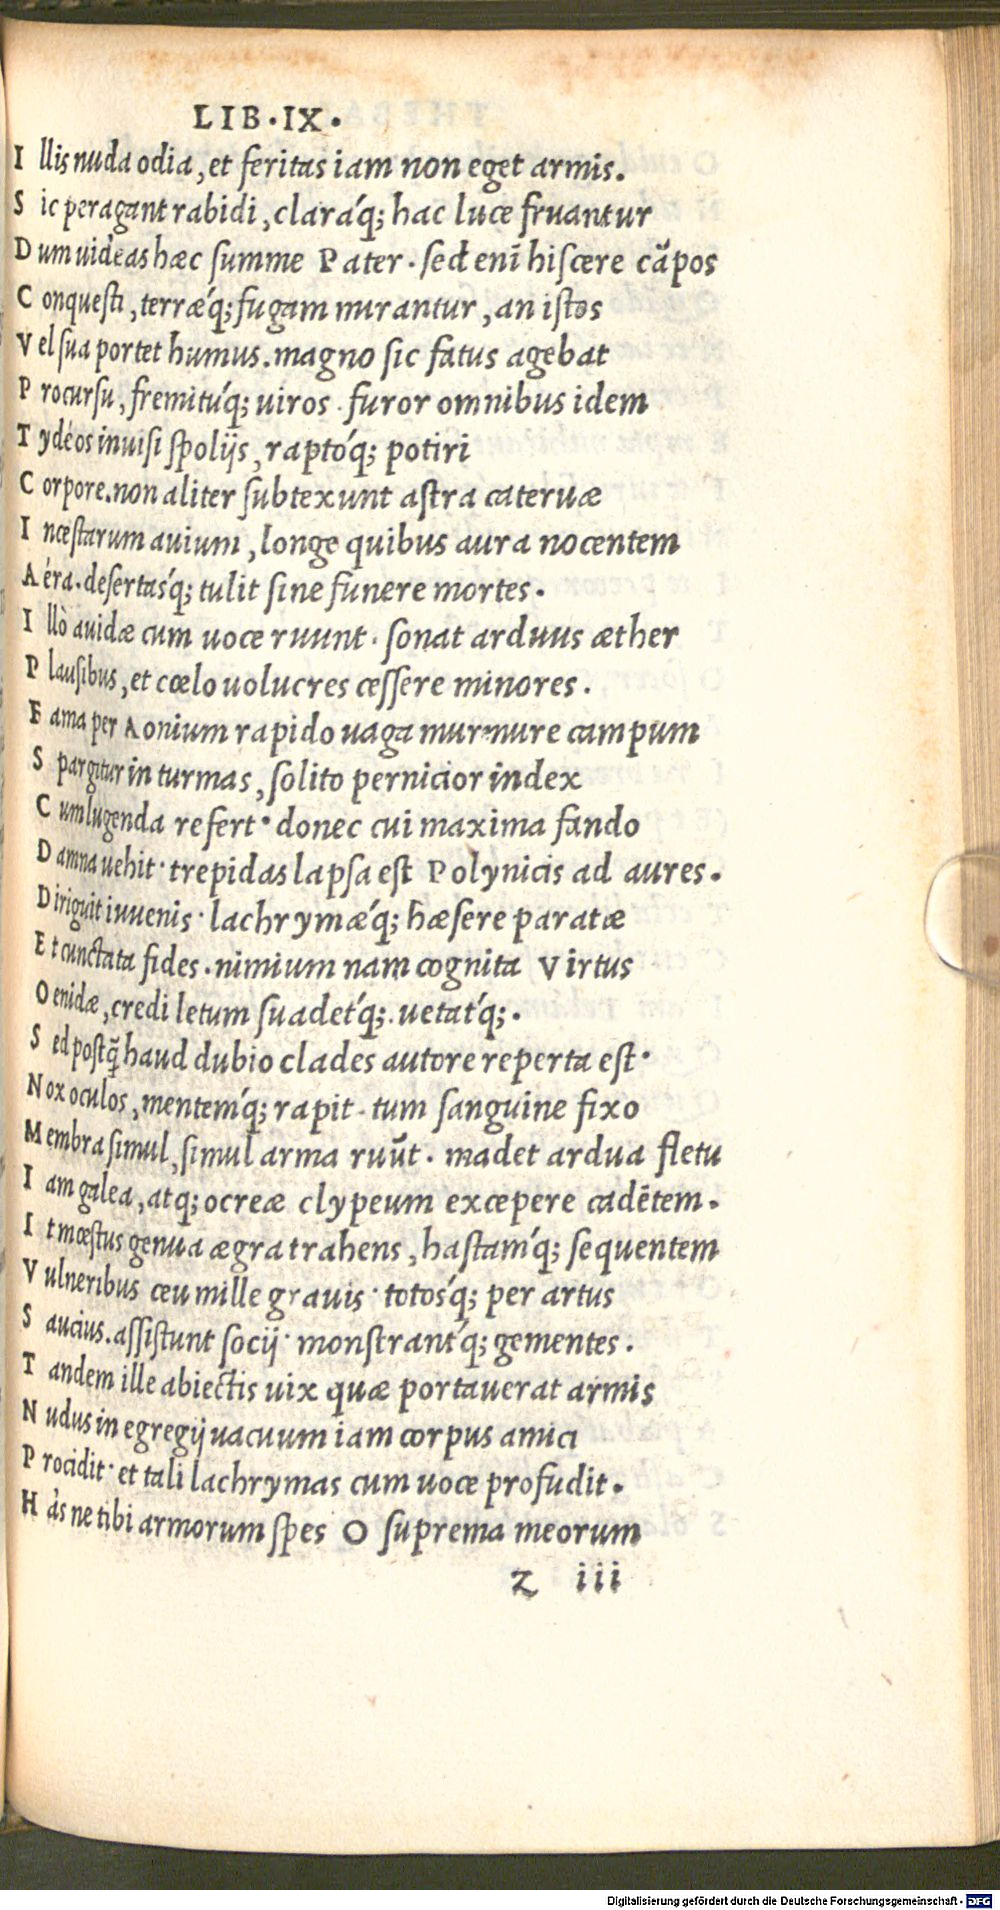 LIB·IX·
I llis nuda odia, et feritas iam non eget armis.
S ic peragant rabidi, claráq; hac luce fruantur
D um uideas hæc summe Pater· sed enī hiscere cāpos
C onquesti, terræq́; fugam mirantur, an istos
V el sua portet humus. magno sic fatus agebat
P rocursu, fremitúq; uiros· furor omnibus idem
T ydéos inuisi spolijs, raptóq; potiri
C orpore. non aliter subtexunt astra cateruæ
I ncestarum auium, longe quibus aura nocentem
A éra· desertasq́; tulit sine funere mortes·
I llò auidæ cum uoce ruunt· sonat arduus æther
P lausibus, et cœlo uolucres cessere minores·
F ama per Aonium rapido uaga murmure campum
S pargitur in turmas, solito pernicior index
C um lugenda refert· donec cui maxima fando
D amna uehit· trepidas lapsa est Polynicis ad aures·
D iriguit iuuenis· lachrymæq́; hæsere paratæ
E t cunctata fides· nimium nam cognita Virtus
O enidæ, credi letum suadetq́;· uetatq́;·
S ed postq̃ haud dubio clades autore reperta est·
N ox oculos, mentemq́; rapit· tum sanguine fixo
M embra simul, simul arma ruūt· madet ardua fletu
I am galea, atq; ocreæ clypeum excepere cadētem·
I t mœstus genua ægra trahens, hastamq́; sequentem
V ulneribus ceu mille grauis· totosq́; per artus
S aucius. assistunt socij· monstrantq́; gementes·
T andem ille abiectis uix quæ portauerat armis
N udus in egregij uacuum iam corpus amici
P rocidit· et tali lachrymas cum uoce profudit·
H ás ne tibi armorum spes O suprema meorum
z iii
Digitalisierung gefördert durch die Deutsche Forschungsgemeinschaft - DFG